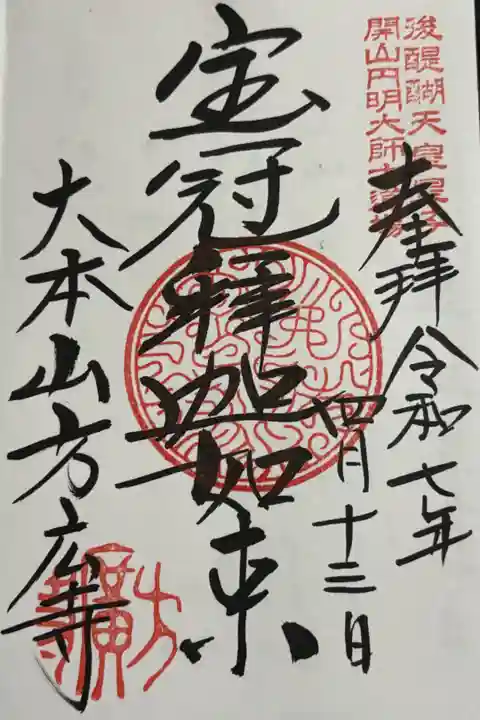 後醍醐天皇皇子
開山円明大師古道場
奉拝 令和七年
四月十三日
宝冠釋迦如来
大本山方広寺
方廣寺